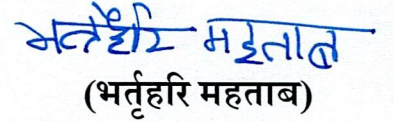 भर्तृहरि महताब
(भर्तृहरि महताब)